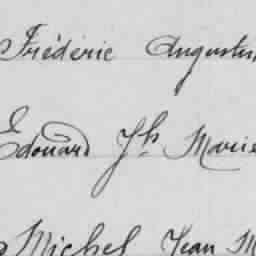 Frédéric Augustus
Edouard Jh Marie
Michel Jean M